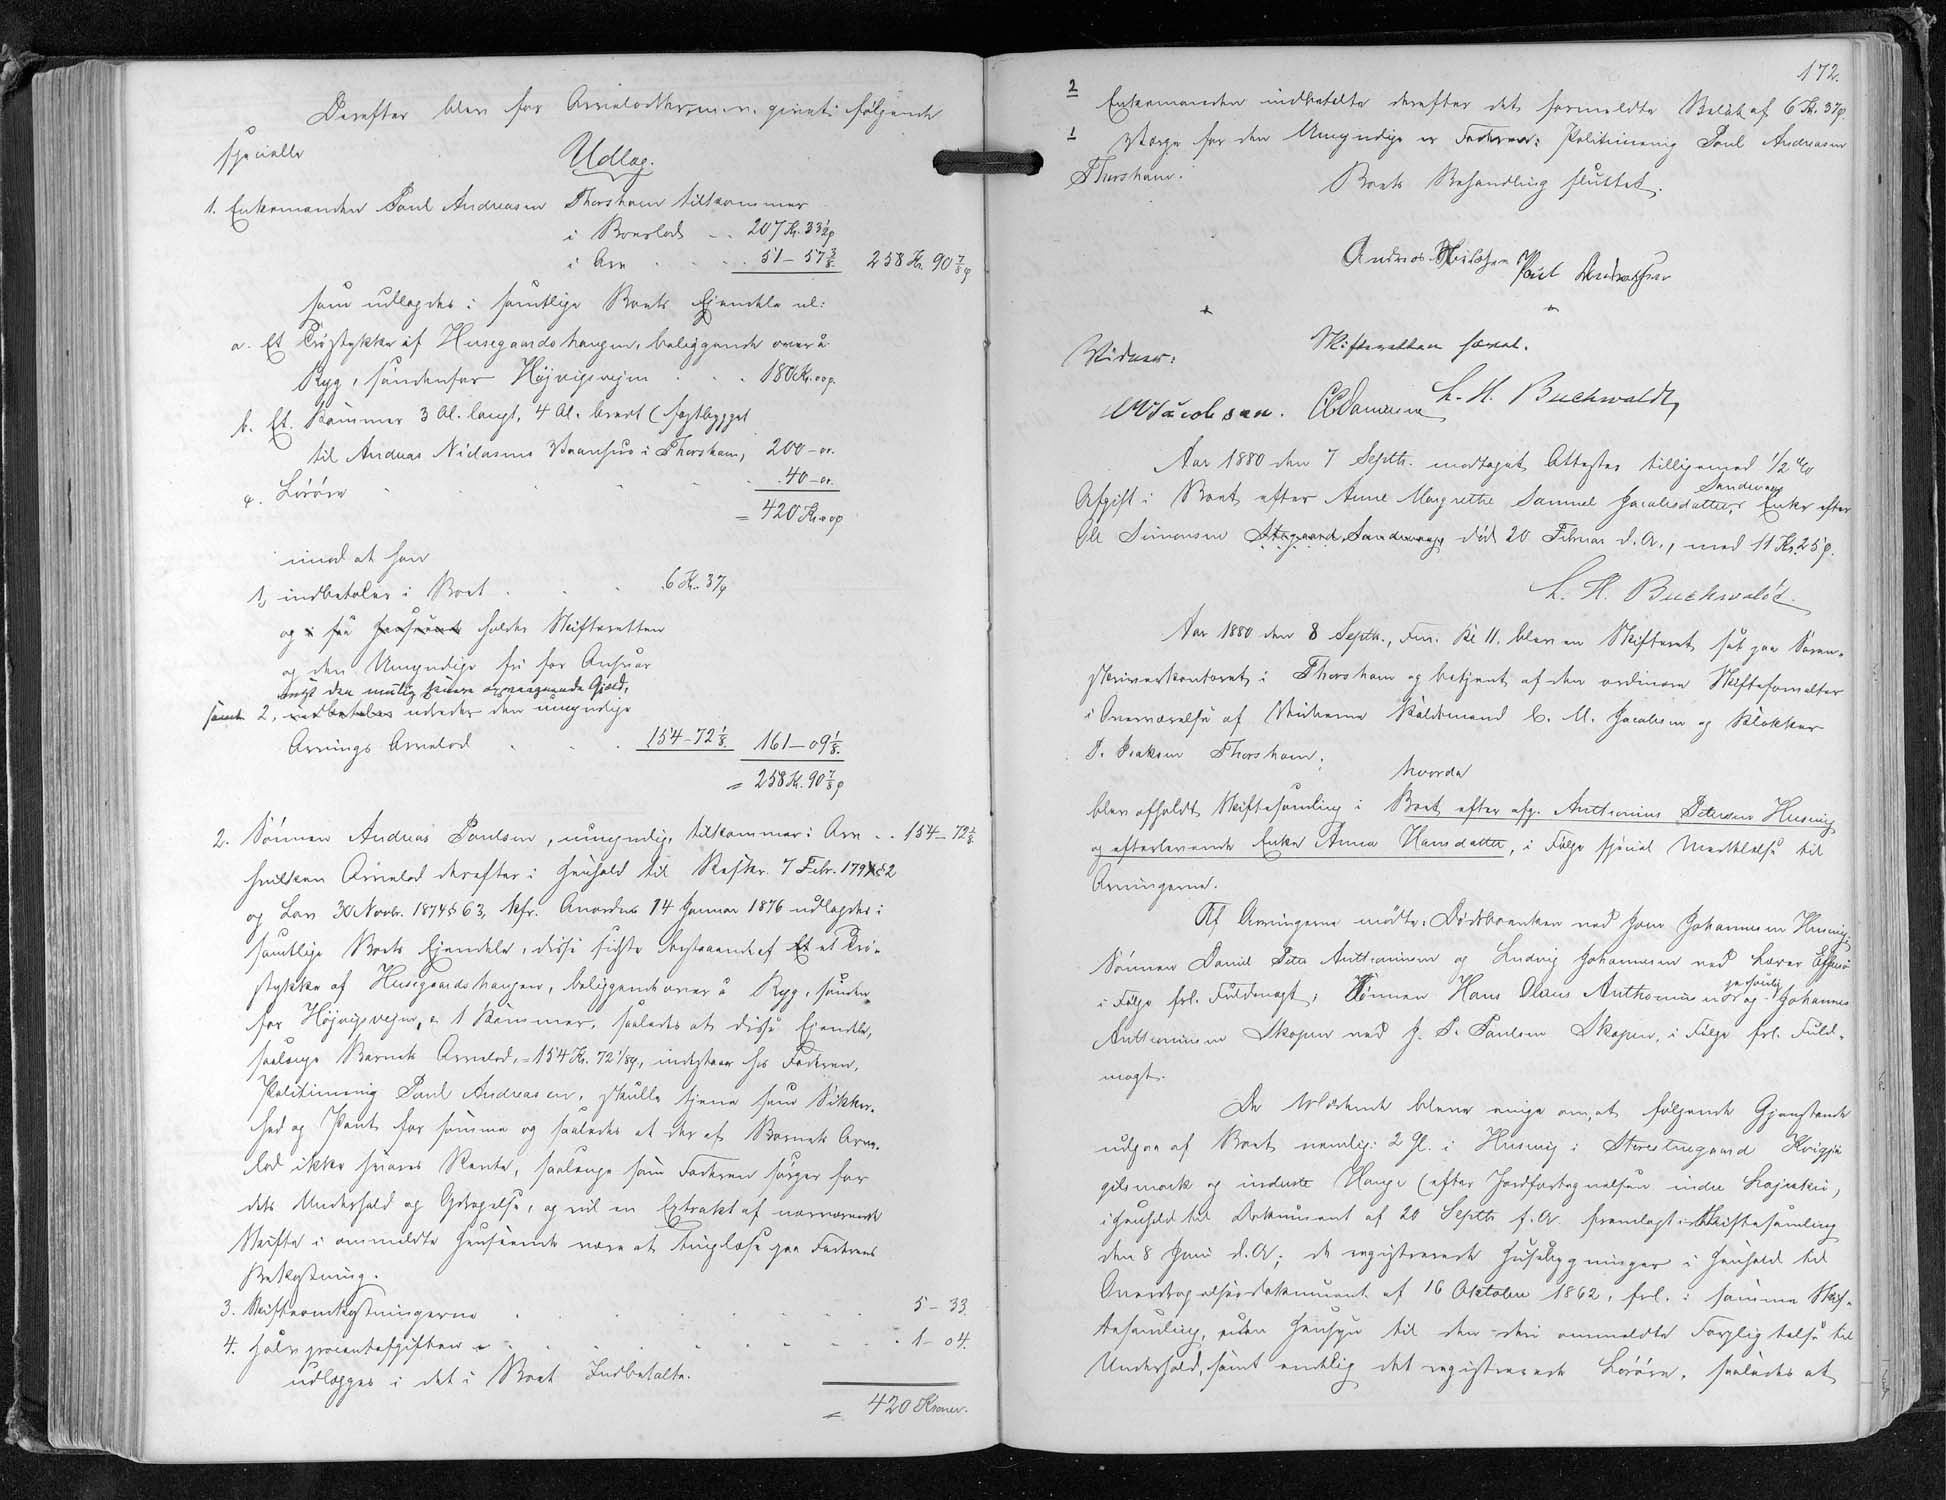 Derefter blev for Arvelodderne m. v. givet følgende
specielle
Udlæg.
1. Enkemanden Poul Andreasen Thorshavn tilkommer
i Boeslod .. 207 Kr. 33½ ø
i Arv . . . 51 - 57 3/8. 258 Kr. 90 7/8 ø
som udlægdes i samtlige Boets Ejendele nl:
a. Et Trøstykke af Husegaards haugen, beliggende over å
Ryg, søndenfor Højvigsvejen . . . 180 Kr. 00 ø.
b. Et Kammer 3 Al. langt, 4 Al. bredt (fastbygget
til Andreas Niclasens Vaanhus i Thorshavn, 200 - 00.
c. Løsøre . . . . . 40 - 00.
= 420 Kr. 00 ø
imod at han
1, indbetaler i Boet . . . 6 Kr. 37 ø
og holder Skifteretten
og den Umyndige fri for Ansvar
mulig senere opvaagnende Gjæld,
samt 2, udreder den umyndige
Arvings Arvelod . . . 154 - 72 1/8 161 - 09 1/8.
= 258 Kr. 90 7/8 ø
2. Sønnen Andreas Poulsen, umyndig, tilkommer i Arv .. 154 - 72 1/8.
hvilken Arvelod derefter i Henhold til Reskr. 7 Febr. 1794 § 2
og Lov 30 Novbr. 1874 § 63, kfr. Anordn. 14 Januar 1876 udlægdes i
samtlige Boets Ejendele, disse sidste bestaaende af et Trø-
stykke af Husegaards haugen, beliggende over å Ryg, sønden-
for Højvigsvejen, & 1 Kammer, saaledes at disse Ejendele,
saalænge Barnets Arvelod, = 154 Kr. 72 1/8 ø, indestaar hos Faderen,
Politimenig Poul Andreasen, skulle tjene som Sikker-
hed og Pant for samme og saaledes at der af Barnets Arve-
lod ikke svares Rente, saalænge som Faderen sørger for
dets Underhold og Opdragelse, og vil en Extrakt af nærværende
Skifte i ommeldte Henseende være at tinglæse paa Faderens
Bekostning.
3. Skifteomkostningerne . . . . . . 5 - 33.
4. Halvprocentafgiften . . . . . . 1 - 04.
udlægges i det i Boet Indbetalte.
= 420 Kroner.
172.
2 Enkemanden indbetalte derefter det formeldte Beløb af 6 Kr. 37 ø.
1 Værge for den Umyndige er Faderen: Politimenig Poul Andreasen
Thorshavn.
Boets Behandling sluttet.
Andreas Poul Andreasen
Skifteretten hævet.
Vidner:
Jacobsen. Danielsen L. H. Buchwaldt,
Aar 1880 den 7 Septbr. modtaget Attester tilligemed ½ %
Afgift i Boet efter Anne Margrethe Samuel Jacobsdatter, Sandevaag Enke efter
Ole Simonsen Stegaard, Sandevaag, død 20 Februar d. A., med 11 Kr. 25 ø.
L. H. Buchwaldt.
Aar 1880 den 8 Septbr., Fm. Kl 11. blev en Skifteret sat paa Soren-
skriverkontoret i Thorshavn og betjent af den ordinære Skifteforvalter
i Overværelse af Vidnerne C. M. Jacobsen og Klokker
P. Isaksen Thorshavn;
hvorda
blev afholdt Skiftesamling i Boet efter afg. Anthonius Petersen Husevig
og efterlevende Enke Anna Hansdatter, i Følge special Meddelelse til
Arvingerne.
Af Arvingerne mødte: Dødsboenken ved Jona Johannesen Husevig;
Sønnen Daniel Peter Anthoniusen og Ludvig Johannesen ved Lærer
i Følge frl. Fuldmagt; Sønnen Hans Olaus Anthoniusen personlig og Johannes
Anthoniusen Skopen ved J. P. Poulsen Skopen, i Følge frl. Fuld-
magt.
De Mødende bleve enige om, at følgende Gjenstande
udgaa af Boet nemlig: 2 Gl. i Husevig i
og inderste Hauge (efter Jordfortegnelsen indre
i Henhold til Dokument af 20 Septbr f. A. fremlagt i Skiftesamling
den 8 Juni d. A; de registrerede Husebygninger i Henhold til
Overdragelsesdokument af 16 Oktober 1862, frl. i samme Skif-
tesamling, uden Hensyn til den deri ommeldte Forpligtelse til
Underhold, samt endelig det registrerede Løsøre, saaledes at